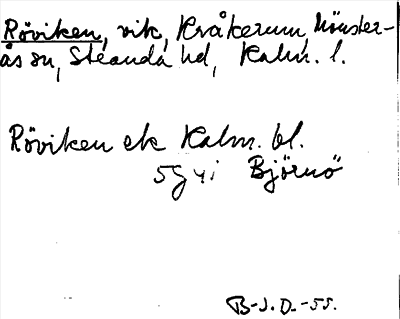 Röviken, vik, Kråkerum, Mönster-
ås sn, Stranda hd, Kalm. l.
Röviken ek Kalm. bl.
5g4i Björnö
B-J.D.-55.